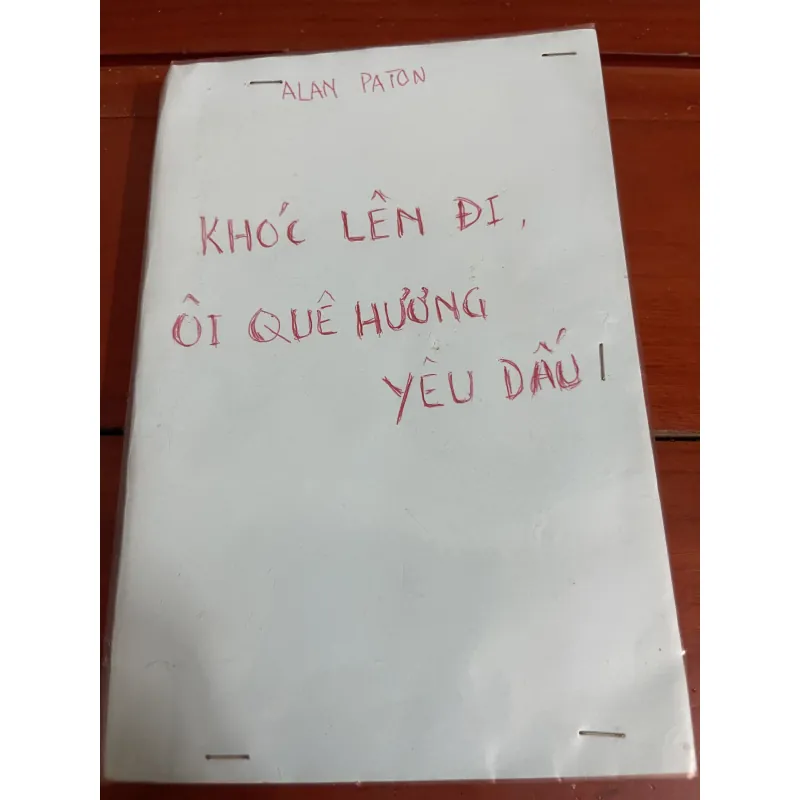 ALAN PATON
KHÓC LÊN ĐI,
ÔI QUÊ HƯƠNG
YÊU DẤU